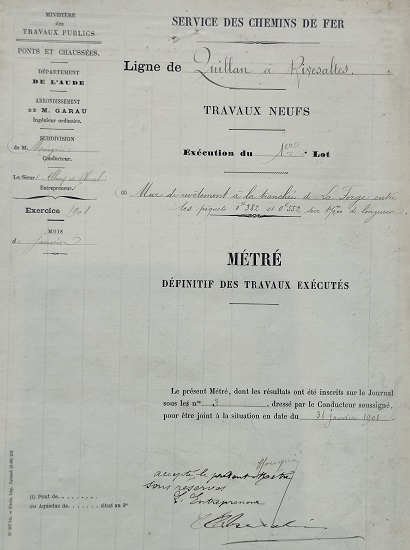 MINISTÈRE
des
TRAVAUX PUBLICS
PONTS ET CHAUSSÉES.
DÉPARTEMENT
DE L'AUDE
ARRONDISSEMENT
DE M. GARAU
Ingénieur ordinaire.
SUBDIVISION
de M. Mouguin
Conducteur.
Le Sieur
Entrepreneur.
Exercice 1901
MOIS
de Janvier
SERVICE DES CHEMINS DE FER
Ligne de Quillan à Rivesaltes.
TRAVAUX NEUFS
Exécution du 1er Lot
(1) Mur de revêtement à la tranchée de La Forge entre
les piquets 0k382 et 0k552 sur de longueur.
MÉTRÉ
DÉFINITIF DES TRAVAUX EXÉCUTÉS
Le présent Métré, dont les résultats ont été inscrits sur le Journal
sous les nos 3, dressé par le Conducteur soussigné,
pour être joint à la situation en date du 31 janvier 1901
accepté le présent Métré
sous réserves
L'Entrepreneur
(1) Pont de
ou Aqueduc de situé au P